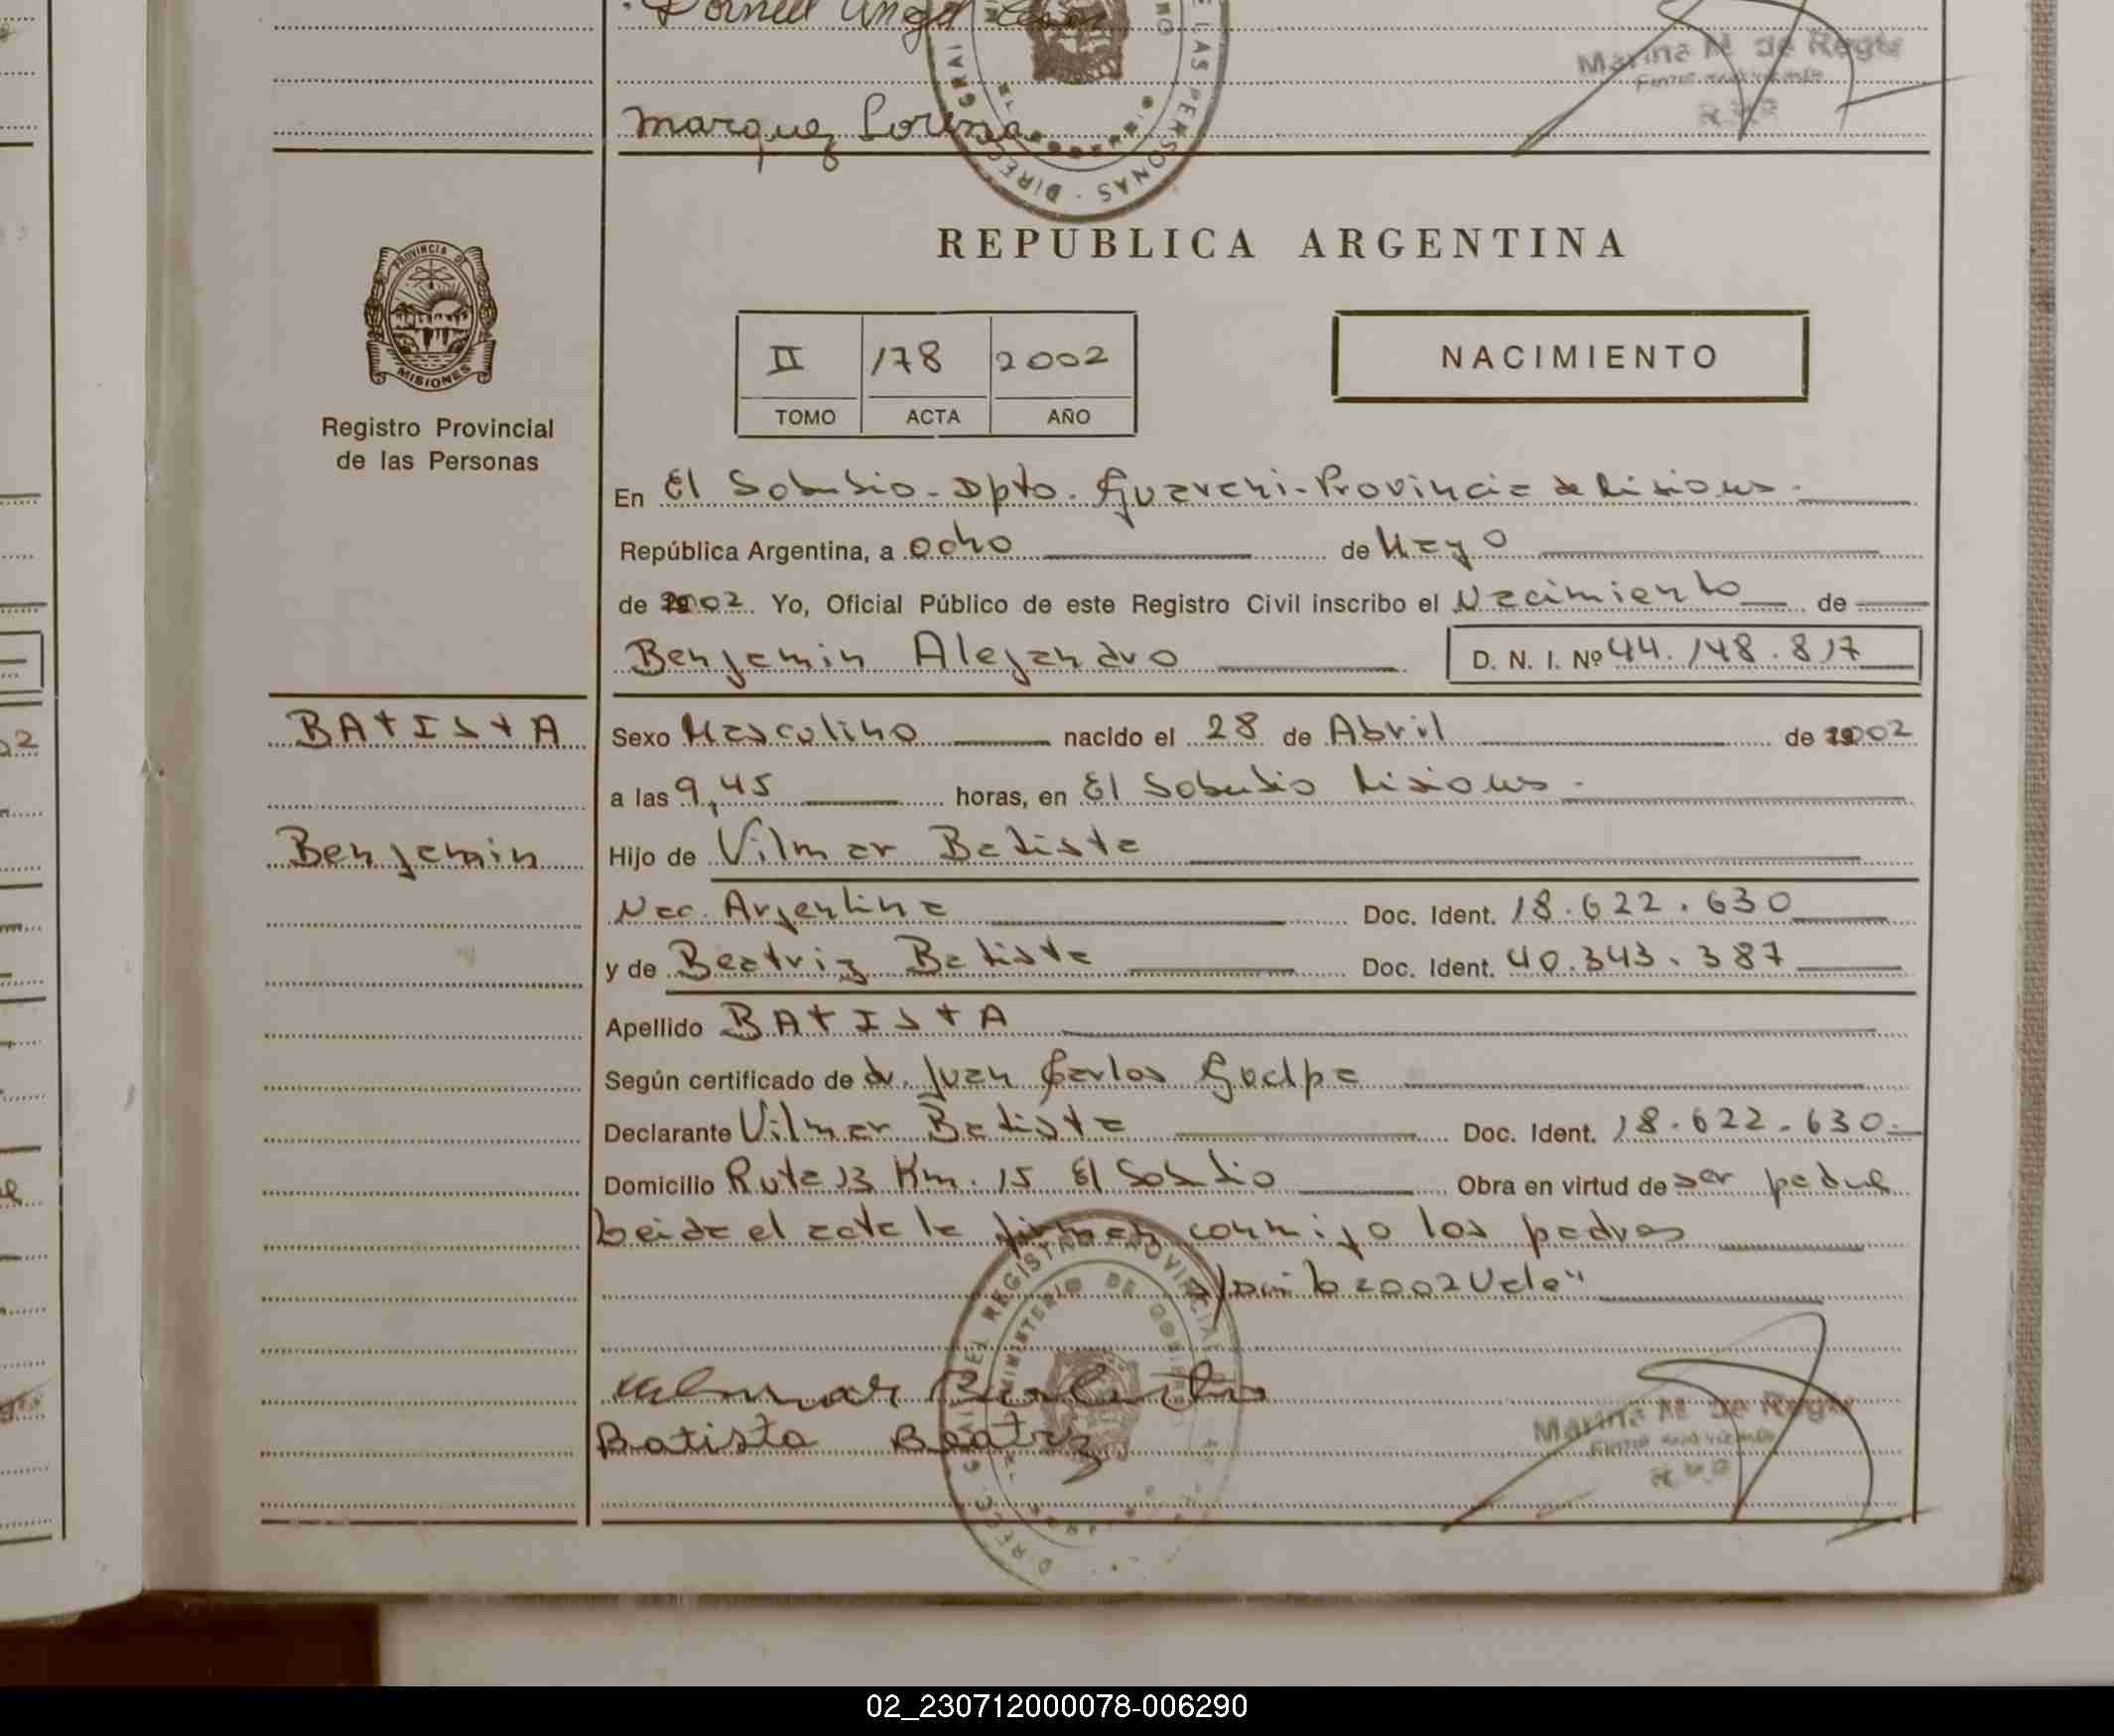 Marquez Lorena
Marina M. de Regis
REPUBLICA ARGENTINA
PROVINCIA DE
MISIONES
Registro Provincial
de las Personas
II 178 2002
TOMO ACTA AÑO
NACIMIENTO
En El Soberbio - Dpto. Guarani - Provincia de Misiones.
República Argentina, a ocho de Mayo
de 2002 Yo, Oficial Público de este Registro Civil inscribo el Nacimiento de
Benjamin Alejandro D. N. I. Nº 44.148.817
BATISTA
Benjamin
Sexo Masculino nacido el 28 de Abril de 2002
a las 9,45 horas, en El Soberbio Misiones -
Hijo de Vilmar Batista
Nac. Argentina Doc. Ident. 18.622.630
y de Beatriz Batista Doc. Ident. 40.343.387
Apellido BATISTA
Según certificado de dr. Juan Carlos
Declarante Vilmar Batista Doc. Ident. 18.622.630.
Domicilio Ruta 13 Km. 15 El Soberbio Obra en virtud de ser padre
Leida el acta la firman conmigo los padres
2002 Vale"
Batista Beatriz
Marina M. de Regis
02_230712000078-006290